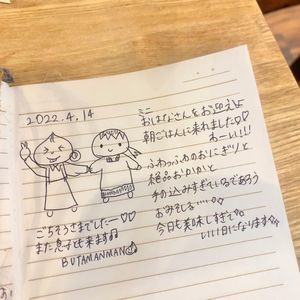 2022.4.14
ごちそうさまでしたー♡♡
また息子と来ます♫
BUTAMANMAN
ミニ
おはなさんをお迎えよ
朝ごはんに来れました♡♡
わーい!!!
ふわっふわのおにぎりと
絶品おかかと
手の込みすぎているであろう
おみそしる……☆
今日も美味しすぎて
いい1日になります☆